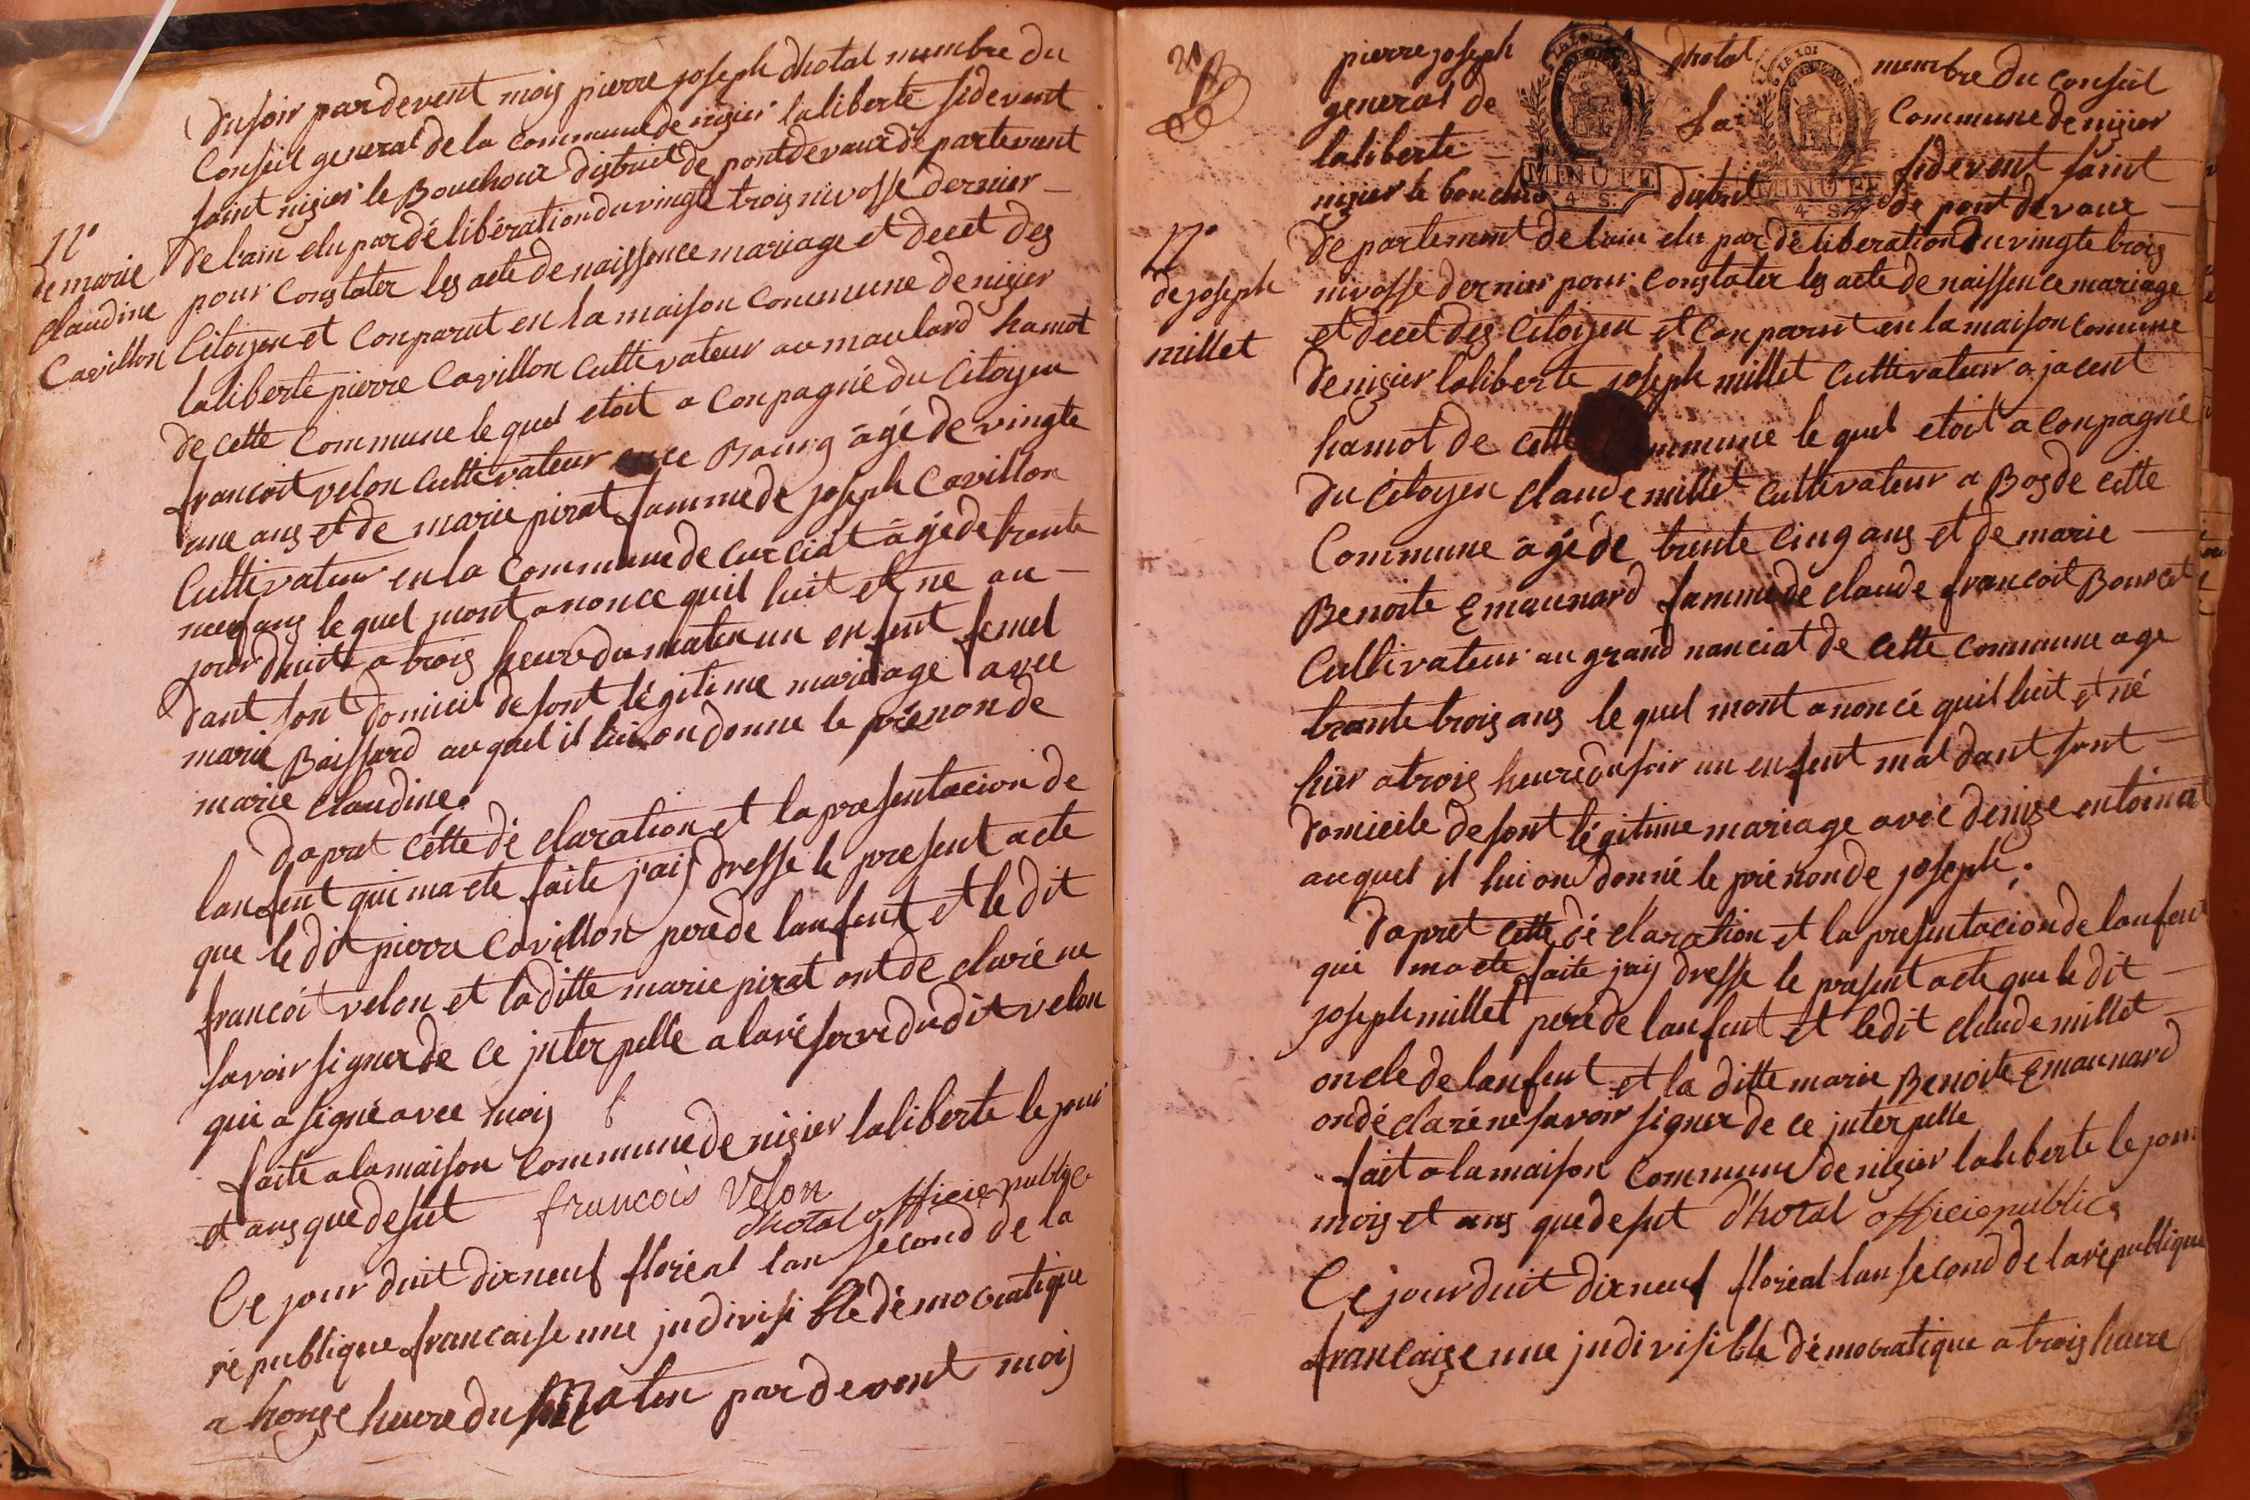 du soir pardevent moij pierre joseph dhotal membre du
Conseil general de la commune de nizier laliberté sidevent
saint nizier le Bouchoux district de pontdevaux départemant
de lain elu par délibération du vingt trois nivosse dernier
pour Constater les acte de naissence mariage et decet des
Citoyen et Conparut en la maison commune de nizier
laliberte pierre Cavillon cultivateur au maulard hamot
de cette commune le quel etoit a conpagné du Citoyen
francoit velon cultivateur en ce Bourg âgé de vingte
une ans et de marie pirat famme de joseph Cavillon
Cultivateur en la commune de curciat âgé de trante
neuf ans le quel mont anonce quil luit et ne au
jour duit a trois heure du maten un enfent femel
dant sont domicil de sont légitime mariage avec
marie Baissard au quel il lui on donne le prénon de
marie claudine.
dapret cette dé claration et la presentacion de
lanfent qui ma ete faite j'aij dresse le present acte
que le dit pierre Cavillon pere de lanfent et le dit
francoit velon et la ditte marie pirat ont de claré ne
savoir signer de ce interpelle a la réserve du dit velon
qui a signé avec moij
faite a la maison commune de nizier laliberte le jour
et ans que desut francois velon
dhotal officie public
Ce jour duit dix neuf floréal lan second de la
république francaise une jndivisible démocratique
a honze heure du Maten pardevent moij
11e
de marie
claudine
Cavillon
21
pierre joseph dhotal membre du Conseil
general de la Commune de nizier
laliberte sidevent saint
nizier le bouchoux district de pont de vaux
MINUTE
4 S.
MINUTE
4 S.
departement de lain elu par déliberation du vingte trois
nivosse dernier pour Constater les acte de naissence mariage
et decet des Citoyen et Conparut en la maison comune
de nizier laliberte joseph millet cultivateur a jacent
hamot de cette commune le quel etoit a conpagné
du Citoyen claude millet cultivateur a Bos de cette
Commune âgé de trente cinq ans et de marie
Benoite Emaunard famme de claude francoit Bourcet
Cultivateur au grand nanciat de cette commune age
trante trois ans le quel mont anoncé quil luit et né
hier a trois heure du soir un enfent mal dant sont
domicile de sont légitime mariage avec denize entoinat
au quel il lui on donné le prénon de joseph.
dapret cette dé claration et la presentacion de lanfent
qui ma ete faite jaij dresse le present acte que le dit
joseph millet pere de lanfent et le dit claude millet
oncle de lanfent et la ditte marie Benoite Emaunard
on dé claré ne savoir signer de ce interpelle
fait a la maison commune de nizier laliberte le jour
mois et ans que desut d'hotal officie public
Ce jour duit dix neuf floréal lan second de la république
francaize une jndivisible démocratique a trois heure
11e
de joseph
millet